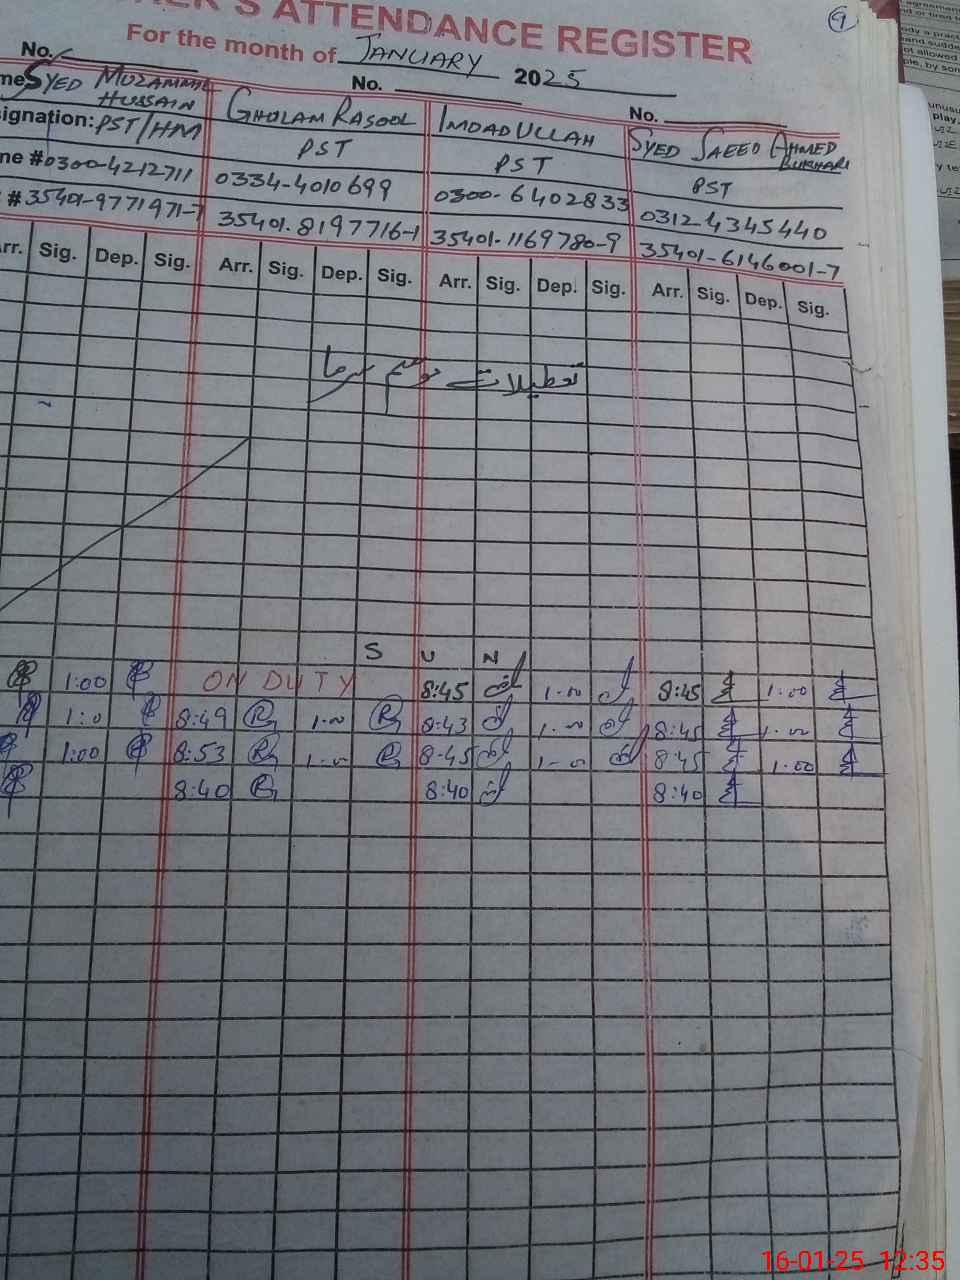 ER'S ATTENDANCE REGISTER
For the month of JANUARY 2025
No. No. No.
SYED MUZAMMIL HUSSAIN GHOLAM RASOOL IMDADULLAH SYED SAEED AHMED BUKHARI
signation: PST/HM PST PST PST
ne # 0300-4212711 0334-4010699 0300-6402833 0312-4345440
# 35401-9771971-7 35401-8197716-1 35401-1169780-9 35401-6146001-7
rr. Sig. Dep. Sig. Arr. Sig. Dep. Sig. Arr. Sig. Dep. Sig. Arr. Sig. Dep. Sig.
تعطیلات موسم سرما
S U N
1:00 ON DUTY 8:45 1-00 8:45 1:00
1:0 8:49 1-00 8:43 1-00 8:45 1-00
1:00 8:53 1-00 8-45 1-00 8:45 1:00
8:40 8:40 8:40
16-01-25 12:35